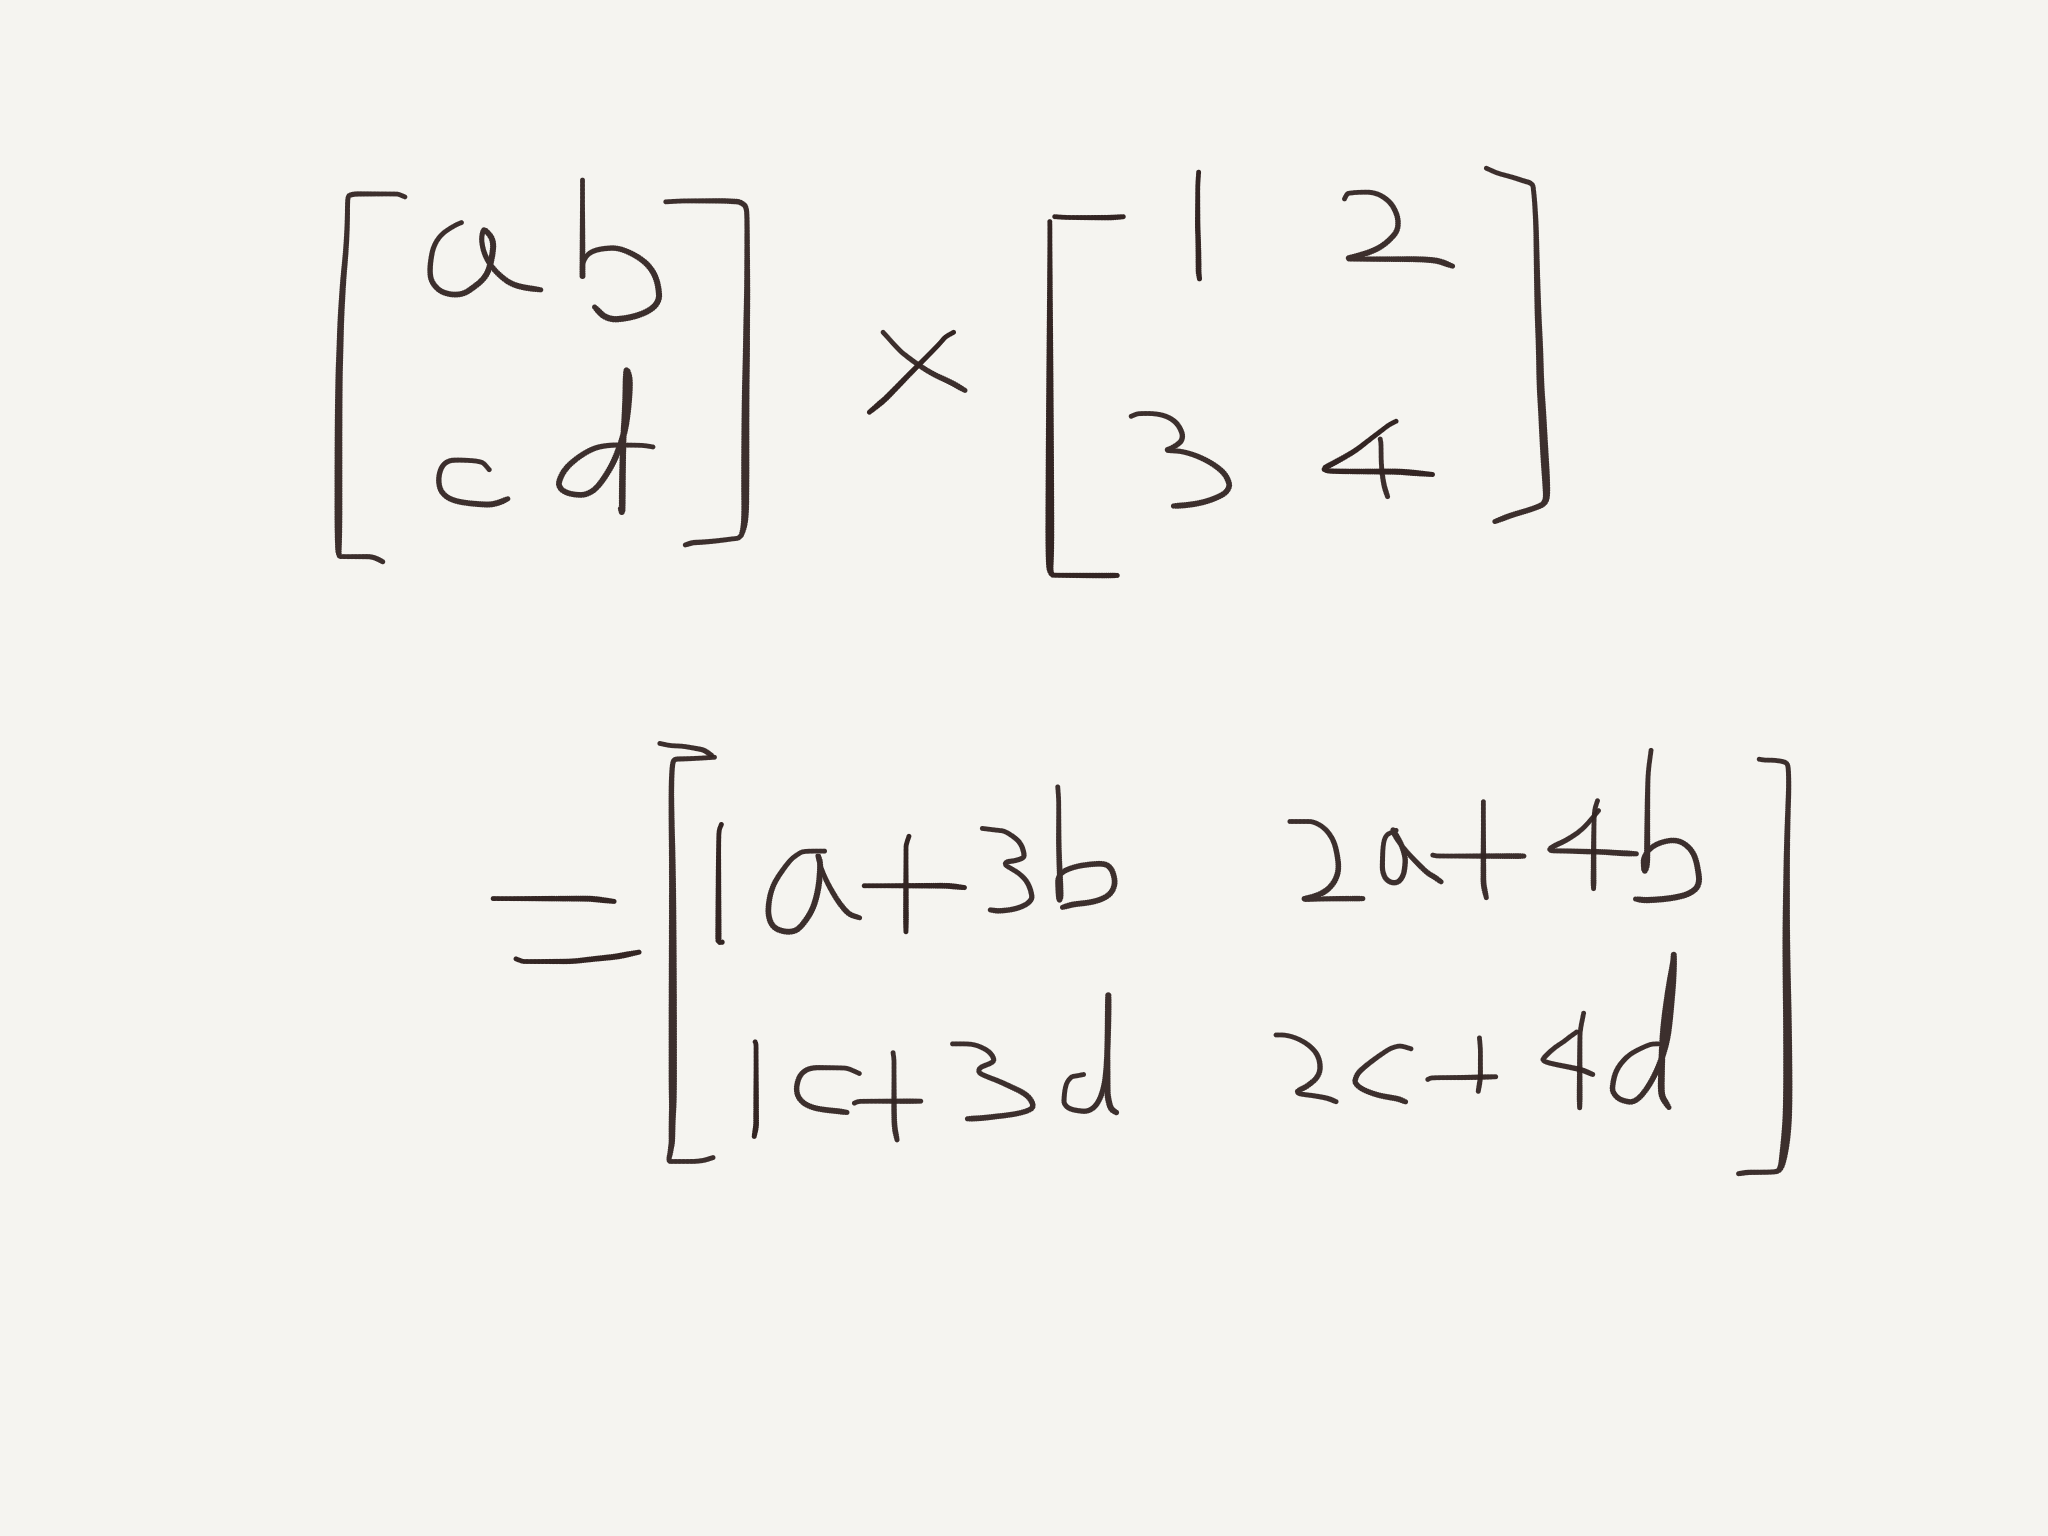 [a b] × [1 2]
[c d] [3 4]
= [1a+3b 2a+4b]
[1c+3d 2c+4d]